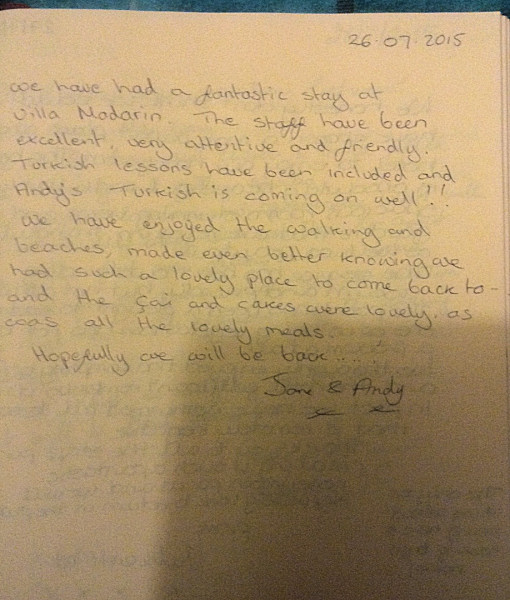 26.07.2015
We have had a fantastic stay at
Villa Modarin. The staff have been
excellent, very attentive and friendly.
Turkish lessons have been included and
Andy's Turkish is coming on well!!
We have enjoyed the walking and
beaches, made even better knowing we
had such a lovely place to come back to -
and the çai and cakes were lovely, as
was all the lovely meals.
Hopefully we will be back.....
Jane & Andy
x x